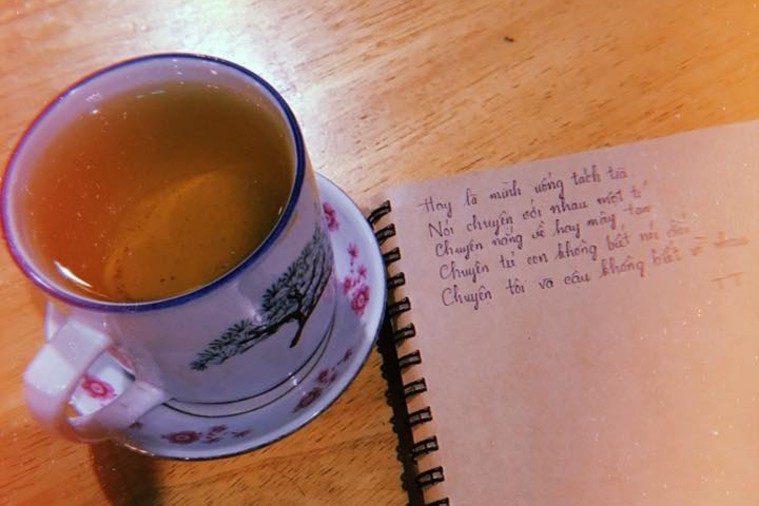 Hay là mình uống tách trà
Nói chuyện với nhau một tí
Chuyện nắng về hay mây tan
Chuyện từ con không bắt nói
Chuyện tôi và cậu không bắt
TT